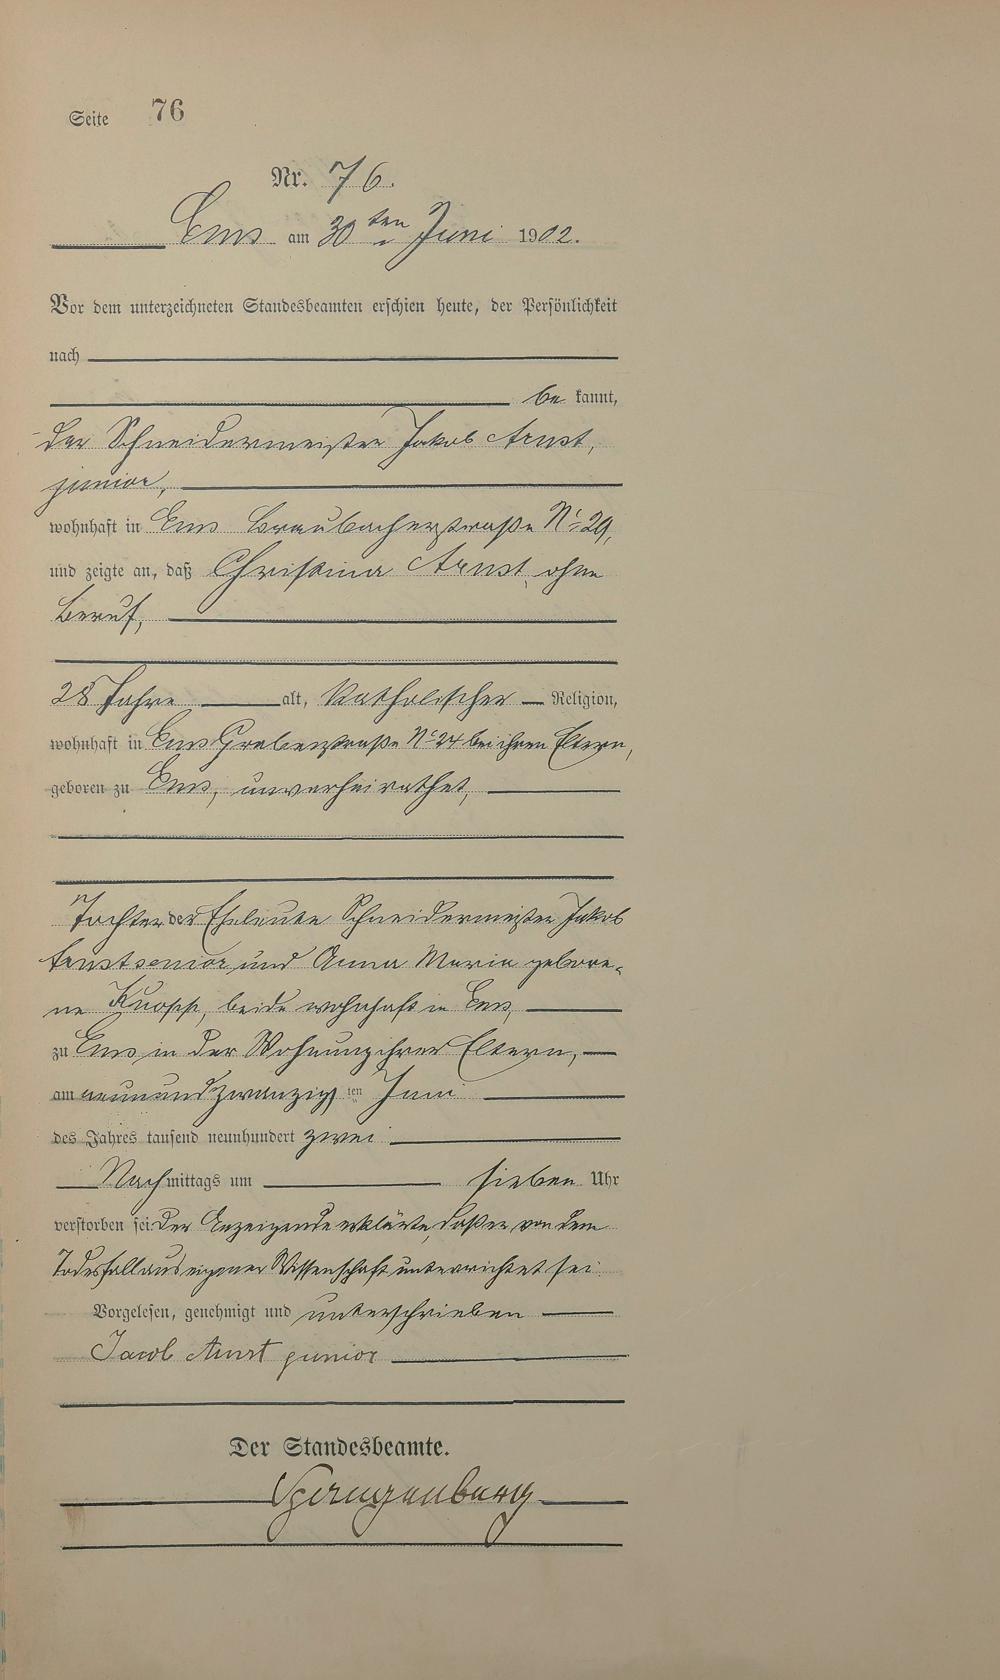 Seite 76
Nr. 76.
Ems am 30ten Juni 1902.
Vor dem unterzeichneten Standesbeamten erschien heute, der Persönlichkeit
nach
be kannt,
der Schneidermeister Jakob Arnst,
junior,
wohnhaft in Ems Braubacherstraße No 29,
und zeigte an, daß Christina Arnst, ohne
Beruf,
28 Jahre alt, Katholischer Religion,
wohnhaft in Ems Grabenstraße No 24 bei ihren Eltern,
geboren zu Ems, unverheirathet,
Tochter der Eheleute Schneidermeister Jakob
Arnst senior und Anna Maria gebore-
ne Knopp, beide wohnhaft in Ems,
zu Ems in der Wohnung ihrer Eltern,
am neunundzwanzigsten Juni
des Jahres tausend neunhundert zwei
Nachmittags um sieben Uhr
verstorben sei. Der Anzeigende erklärte, daß er von dem
Todesfall aus eigener Wissenschaft unterrichtet sei.
Vorgelesen, genehmigt und unterschrieben
Jacob Arnst junior
Der Standesbeamte.